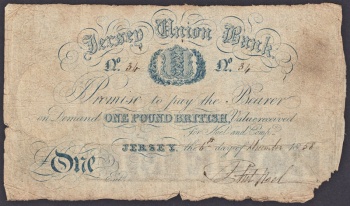 Jersey Union Bank
No. 34 No. 34
I Promise to pay the Bearer
on Demand ONE POUND BRITISH, Value received.
JERSEY, the day of 18
£ One